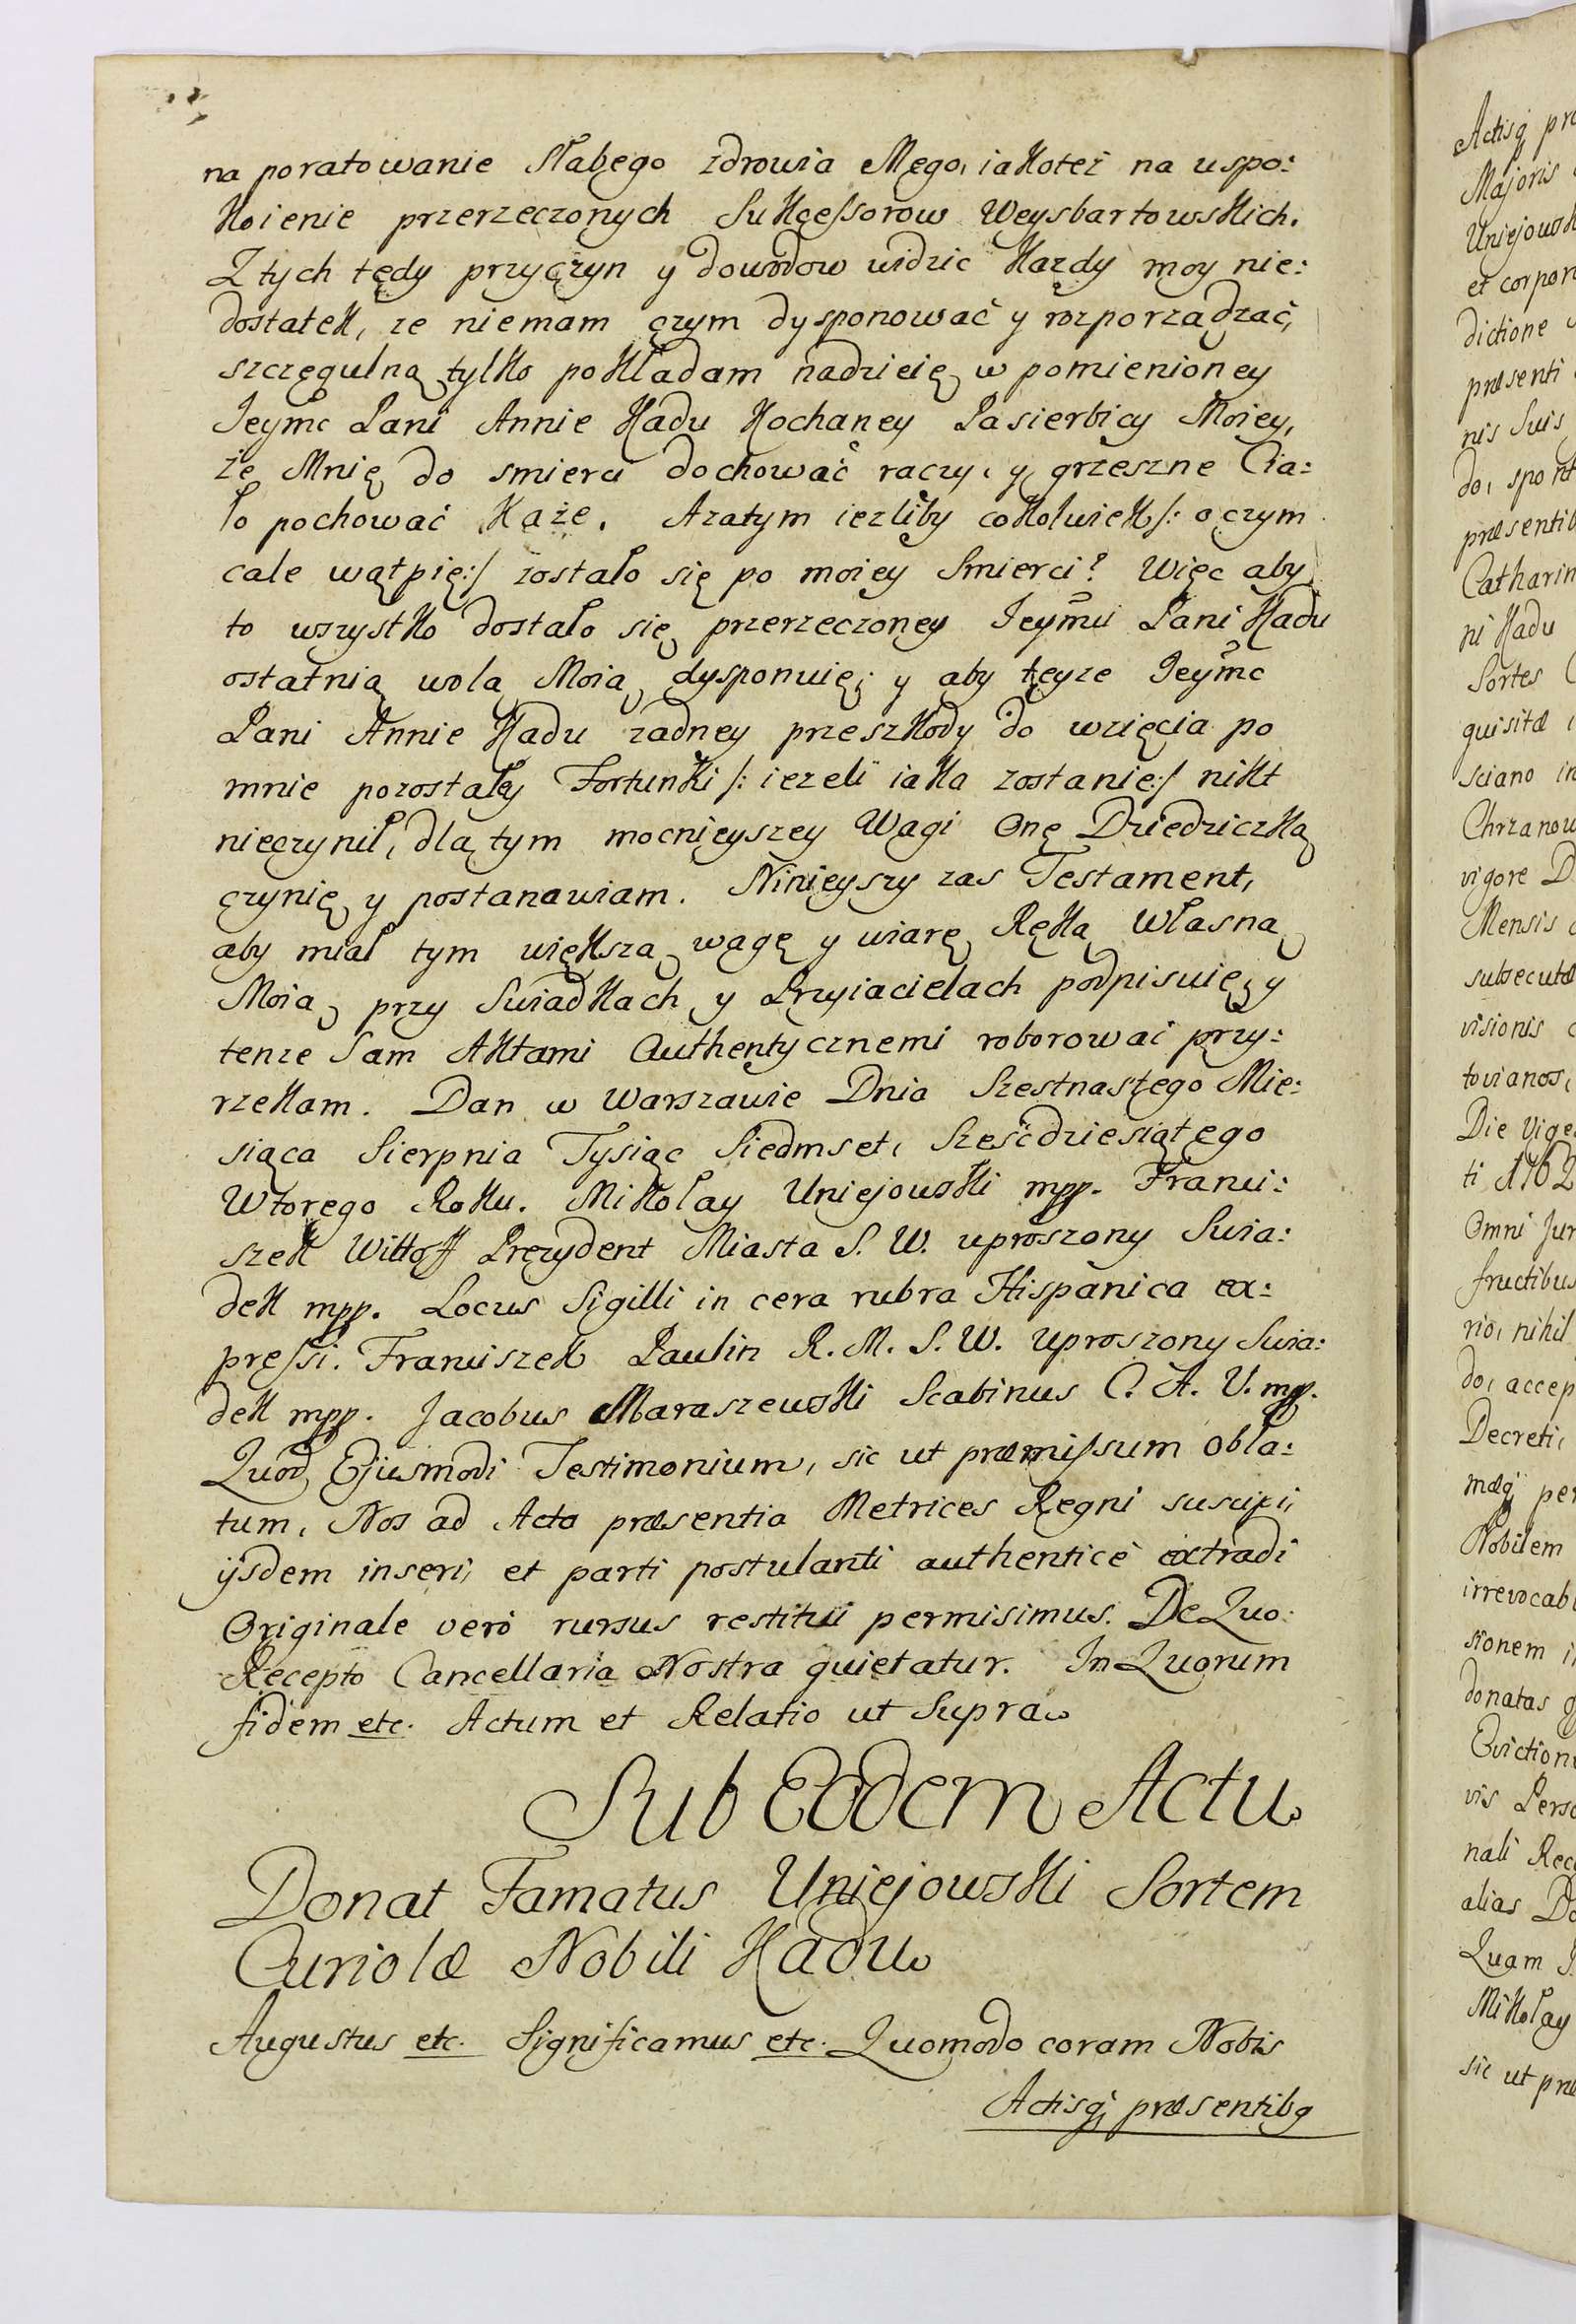 na poratowanie słabego zdrowia Mego, iakoteż na uspo:
koienie przerzeczonych Sukcessorow Weysbartowskich.
Z tych tedy przyczyn y dowodow widzic kazdy moy nie:
dostatek, ze niemam czym dysponować y rozporządzać,
szczegulną tylko pokładam nadzieię w pomienioney
Jeymc Pani Annie Kadu Kochaney Pasierbicy Moiey,
że Mnię do smierci dochować raczy, y grzeszne Cia:
ło pochować każe. Azatym iezliby cokolwiek /: o czym
cale wątpię :/ zostało się po moiey Smierci? Więc aby
to wszystko dostało się przerzeczoney Jeymci Pani Kadu
ostatnią wolą Moią dysponuię; y aby teyze Jeymc
Pani Annie Kadu zadney przeszkody do wzięcia po
mnie pozostałey Fortunki /: iezeli iaka zostanie :/ nikt
nieczynił, dla tym mocnieyszey Wagi Onę Dziedziczką
czynię y postanawiam. Ninieyszy zas Testament,
aby miał tym większą wagę y wiarę Ręką Własną
Moią przy Swiadkach y Przyiacielach podpisuię y
tenze Sam Aktami Authentycznemi roborować przy:
rzekam. Dan w Warszawie Dnia Szesnastego Mie:
siąca Sierpnia Tysiąc Siedmset, Sześćdziesiątego
Wtorego Roku. Mikołay Uniejowski mpp. Franci:
szek Wittoff Prezydent Miasta S. W. uproszony Swia:
dek mpp. Locus Sigilli in cera rubra Hispanica ex:
pressi. Franciszek Paulin R. M. S. W. Uproszony Swia:
dek mpp. Jacobus Maraszewski Scabinus C. A. V. mpp.
Quod Ejusmodi Testimonium, sic ut præmissum obla:
tum, Nos ad Acta præsentia Metrices Regni suscipi,
ijsdem inseri, et parti postulanti authenticè extradi
Originale verò rursus restitui permisimus. De Quo
Recepto Cancellaria Nostra quietatur. In Quorum
fidem etc. Actum et Relatio ut Supra
Sub Eodem Actu
Donat Famatus Uniejowski Sortem
Curiolæ Nobili Kadu
Augustus etc. Significamus etc. Quomodo coram Nobis
Actisq; præsentibg
Actisq; pr
Majoris
Uniejowsk
et corpor
dictione
præsenti
nis Suis
do, spont
præsentib
Catharin
ni Kadu
Sortes
quisitæ
sciano in
Chrzanow
vigore D
Mensis
subsecutæ
visionis
tovianos,
Die Vige
ti 1762
Omni Jur
fructibus
rio, nihil
do, accep
Decreti,
mæq; per
Nobilem
irrevocab
sionem i
donatas
Evictione
vis Perso
nali Rec
alias Do
Quam
Mikołay
sic ut præ